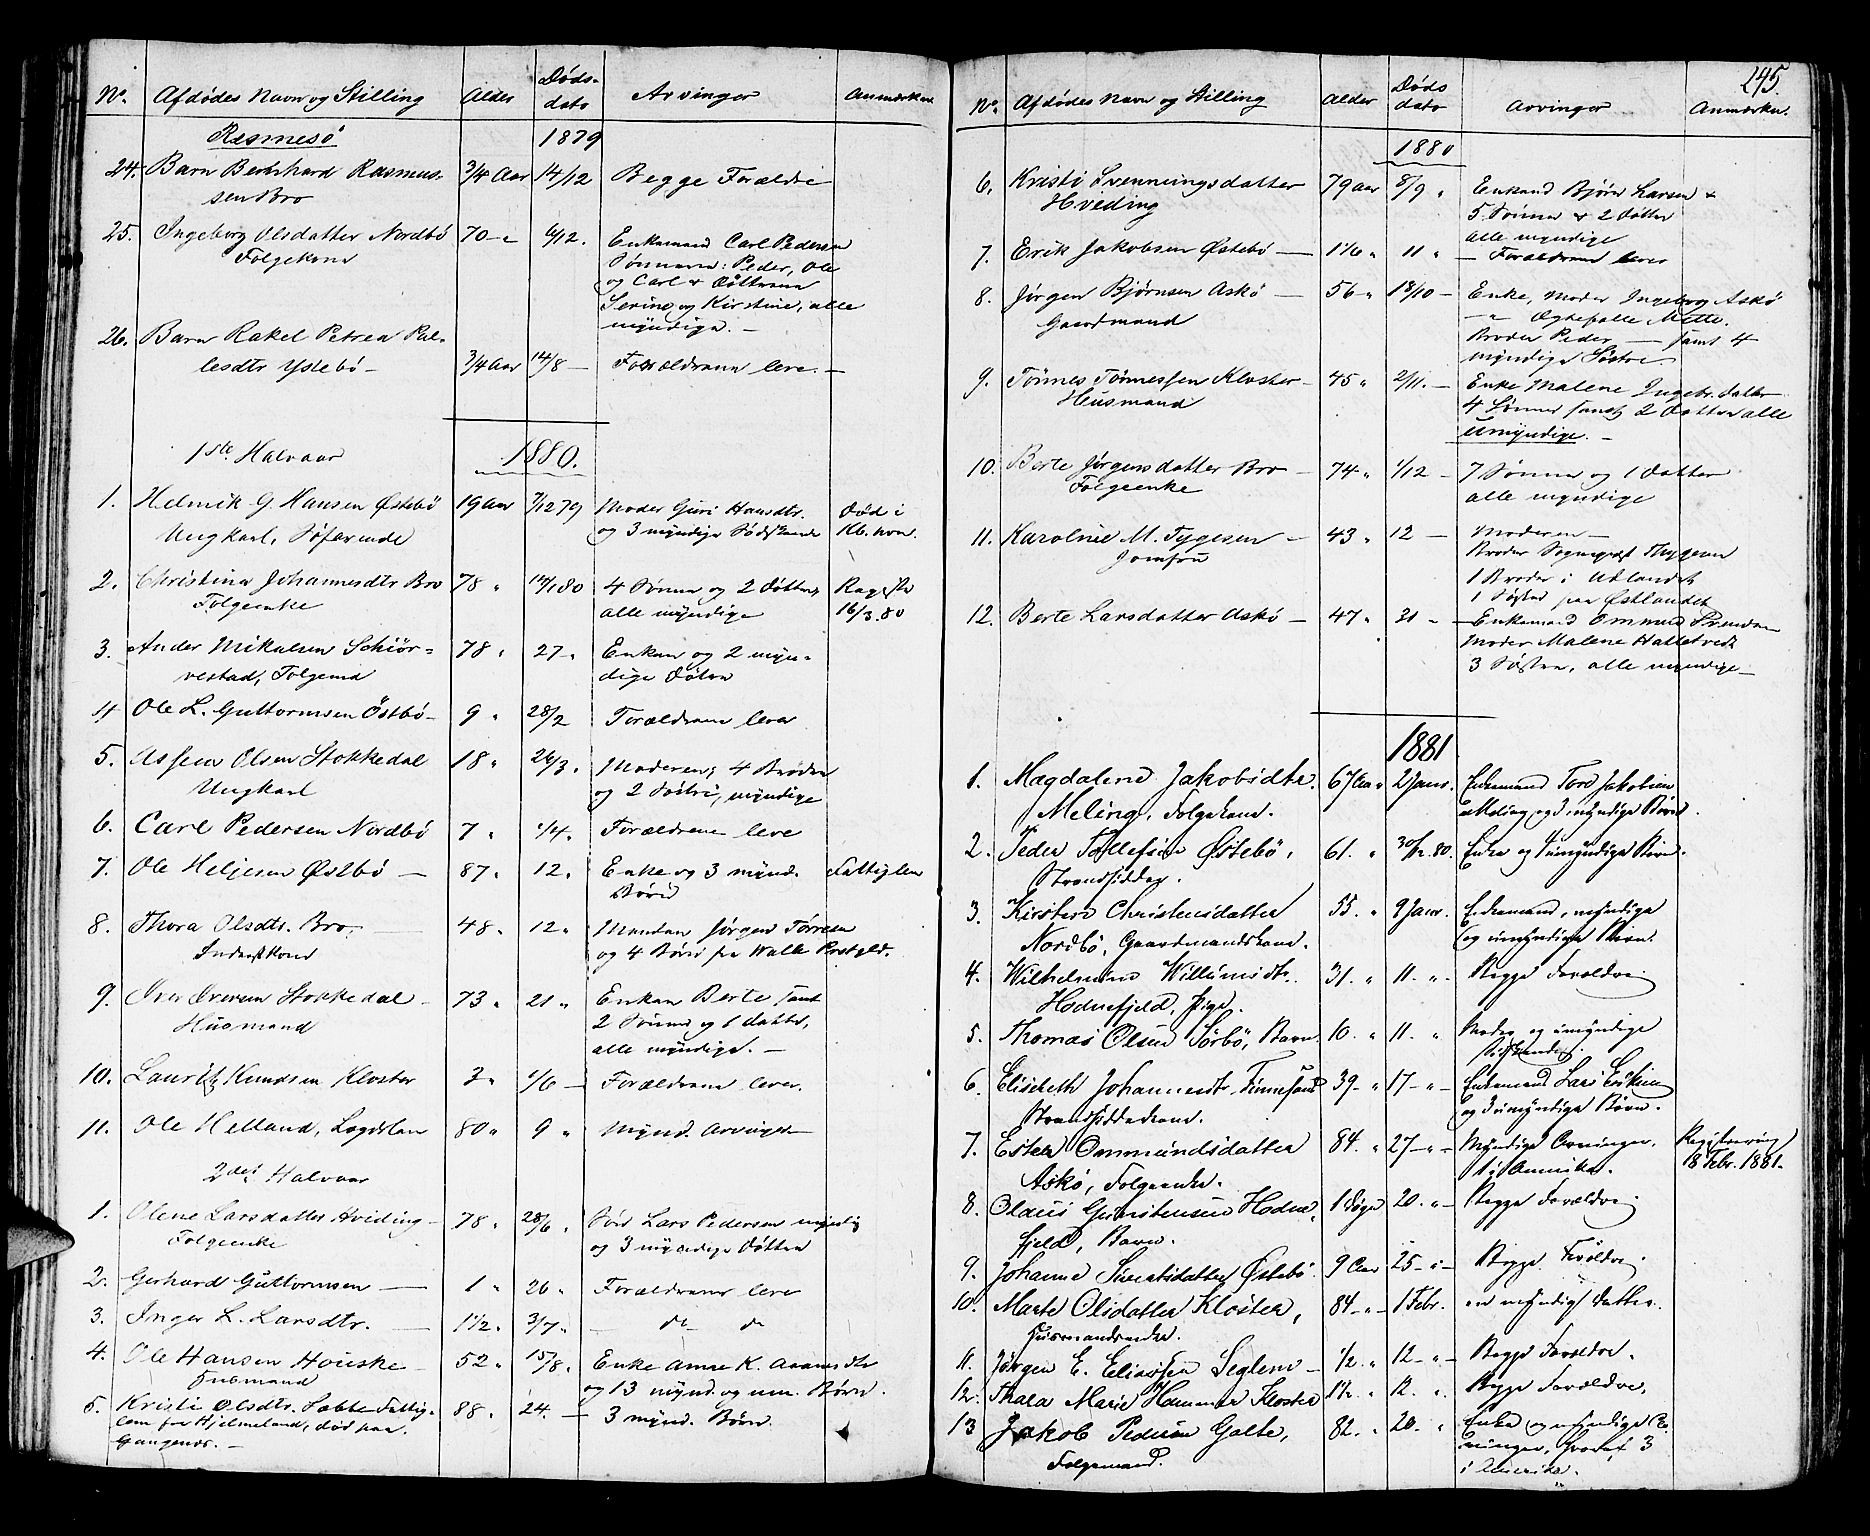 No. Afdødes Navn og Stilling Alder Døds-dato Arvinger Anmærkn.
Rasmesö 1879
24. Barn Bernhard Rasmus- 3/4 Aar 14/12 Begge Forældre
sen Bro
25. Ingeborg Olsdatter Nordbö 70 - " 6/12. Enkemand Carl Pedersen
Folgekone Sønnerne: Peder, Ole
og Carl & Døttrene
Serine og Kirstine, alle
myndige. -
26. Barn Rakel Petrea Pal-
lesdtr Ystebö - 3/4 Aar 14/8 - Forældrene leve. -
1ste Halvaar 1880.
1. Helmik G. Hansen Östebö 19 Aar 7/12 79 Moder Guri Hansdtr. død i
Ungkarl, Söfarende og 3 myndige Södskende Kb.havn.
2. Christina Johannesdtr Bro 78 " 14/1 80 4 Sønner og 2 Døttre,
Folgeenke alle myndige 16/3.80
3. Ander Mikalsen Schiör- 78 " 27 - Enken og 2 myn-
vestad, Folgemd dige Døtre
4 Ole L. Guttormsen Östbö - 9 " 28/2 Forældrene lever
5. Assen Olsen Stokkedal 18 " 26/3 Moderen; 4 Brødre
Ungkarl og 2 Søstre, myndige
6. Carl Pedersen Nordbö 7 " 1/4 Forældrene leve
7. Ole Heljesen Östbö - 87 " 12 " Enke og 3 mynd. Fattiglem
Børn
8. Thora Olsdtr. Bro, 48 " 12 " Manden Jörgen Törresen
Inderstkone og 4 Børn
9. Iver Iversen Stokkedal - 73 " 21 " Enken Berte samt
Husmand 2 Sønner og 1 datter,
alle myndige. -
10. Lauritz Knudsen Kloster 3 " 1/6 - Forældrene lever.
11. Ole Helland, Lægdslem 80 " 9 " Mynd. Arvinger
2det Halvaar
1. Olene Larsdatter Hviding - 78 " 28/6 " Søn Lars Pedersen myndig
Folgeenke og 3 myndige Døttre
2. Gerhard Guttormsen - 1 " 26 " Forældrene leve
3. Inger L. Larsdtr. - 1 1/2 " 3/7 " - do do
4. Ole Hansen Houske - 52 " 15/8 " Enke Anne K. Aamesdtr
Husmand og 13 mynd. og um. Børn.
5. Kristi Olsdtr. Fattig- 88 " 24. - 3 mynd. Børn.
lem fra Hjelmeland, død paa
Gangenes. -
245.
No. Afdødes Navn og Stilling Alder Døds dato Arvinger Anmærkn.
1880
6. Kristi Svenningsdatter 79 Aar 8/9 " Enkemd Bjørn Larsen &
Hveding 5 Sønner & 2 Døttre
alle myndige
7. Erik Jakobsen Östebö - 1 1/6 " 11 " - Forældrene lever
8. Jørgen Bjørnsen Askö - 56 " 18/10 - Enke, Moder Ingeborg Askö
Gaardmand - " Ægtefælle Mette.
Broder Peder - samt 4
myndige Søstre
9. Tönnes Tönnessen Kloster - 45 " 2/11. - Enke Malene Ingebr. datter
Husmand 4 Sønner samt 2 Døttre alle
umyndige. -
10. Berte Jörgensdatter Bro - 74 " 1/12 - 7 Sønner og 1 datter
Folgeenke alle myndige
11. Karolnie M. Tygesen - 43 " 12 - Moderen -
Jomfru Broder Sogneprest Thygesen
1 Broder i Udlandet
1 Søster paa Østlandet
12. Berte Larsdatter Askö - 47 " 31 - Enkemand Ommund
Moder Malene Halletvedt
3 Søstre, alle myndige -
1881
1. Magdalene Jakobsdtr. 67 Aar 2 Janr. Enkemand Tore Jakobsen
Meling, Folgekone. Meling og 3 myndige Børn.
2. Peder Tollefsen Östebö, 61. " 30/12. 80. Enke og 4 umyndige Børn.
Strandsidder.
3. Kirsten Christensdatter 55. " 9 Janr. Enkemand, myndige
Nordbö, Gaardmandskone. og umyndige Børn.
4. Wilhelmine Willumsdtr. 31. " 11. " Begge Forældre.
Hodnefjeld, Pige.
5. Thomas Olsen Sörbö, Barn 10. " 11. " Moder og umyndige
Sødskende.
6. Elisebeth Johannesdtr. Finnesand 39 - " 17 - " - Enkemand Lars Eriksen
Strandsidderkone. og 3 umyndige Børn.
7. Ester Ommundsdatter 84. " 27 - " - Myndige Arvinger, Registrering
Askö, Folgeenke. i Amerika. 18 Febr. 1881.
8. Olaus Gunstensen Hodne- 1 Døgn 20. " - Begge Forældre.
fjeld, Barn.
9. Johanne Sivertsdatter Östebö 9 Aar 25 - " - Begge Forældre.
10. Marte Olsdatter Kloster, 84. " - 1 Febr. en myndig Datter.
Husmandsenke.
11. Jørgen E. Eliassen Seglem - 1/2. " 12 - " - Begge Forældre.
12. Thala Marie Hammer Kloster 1 1/2. " 12. " Begge Forældre,
13 Jakob Pedersen Galte, 82. " 20. " Enke og myndige Ar-
Folgemand. vinger, hvoraf 3
i Amerika.